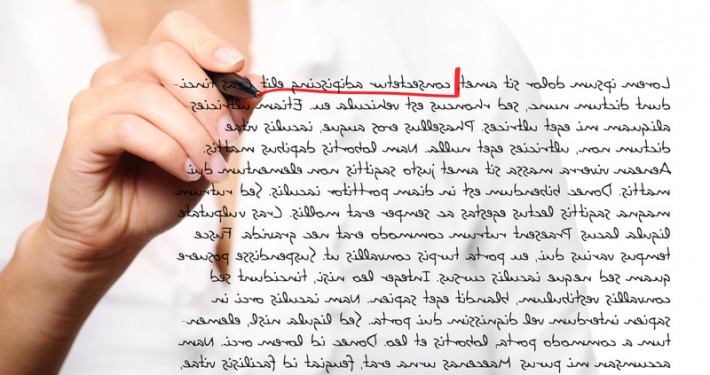 Lorem ipsum dolor sit amet, consectetuer adipiscing elit. Cras tinci-
dunt dictum nunc, sed rhoncus est vehicula eu. Etiam ultricies
aliquam mi eget ultrices. Phasellus eros augue, iaculis vitae
dictum non, ultricies eget nulla. Nam lobortis dapibus mattis.
Aenean viverra massa sit amet justo sagittis non elementum dui
mattis. Donec bibendum est in diam porttitor iaculis. Sed rutrum
magna sagittis lectus egestas ac semper erat mollis. Cras vulputate
ligula lacus. Praesent rutrum commodo erat nec gravida. Fusce
tempus varius dui, eu porta turpis convallis ut. Suspendisse posuere
quam sed neque iaculis cursus. Integer leo nisi, tincidunt sed
convallis vestibulum, blandit eget sapien. Nam iaculis orci in
sapien interdum vel dignissim dui porta. Sed ligula nisl, elemen-
tum a commodo porta, lobortis et leo. Donec id lorem id orci. Nam
accumsan purus mi. Maecenas urna erat, feugiat id facilisis id, vitae,